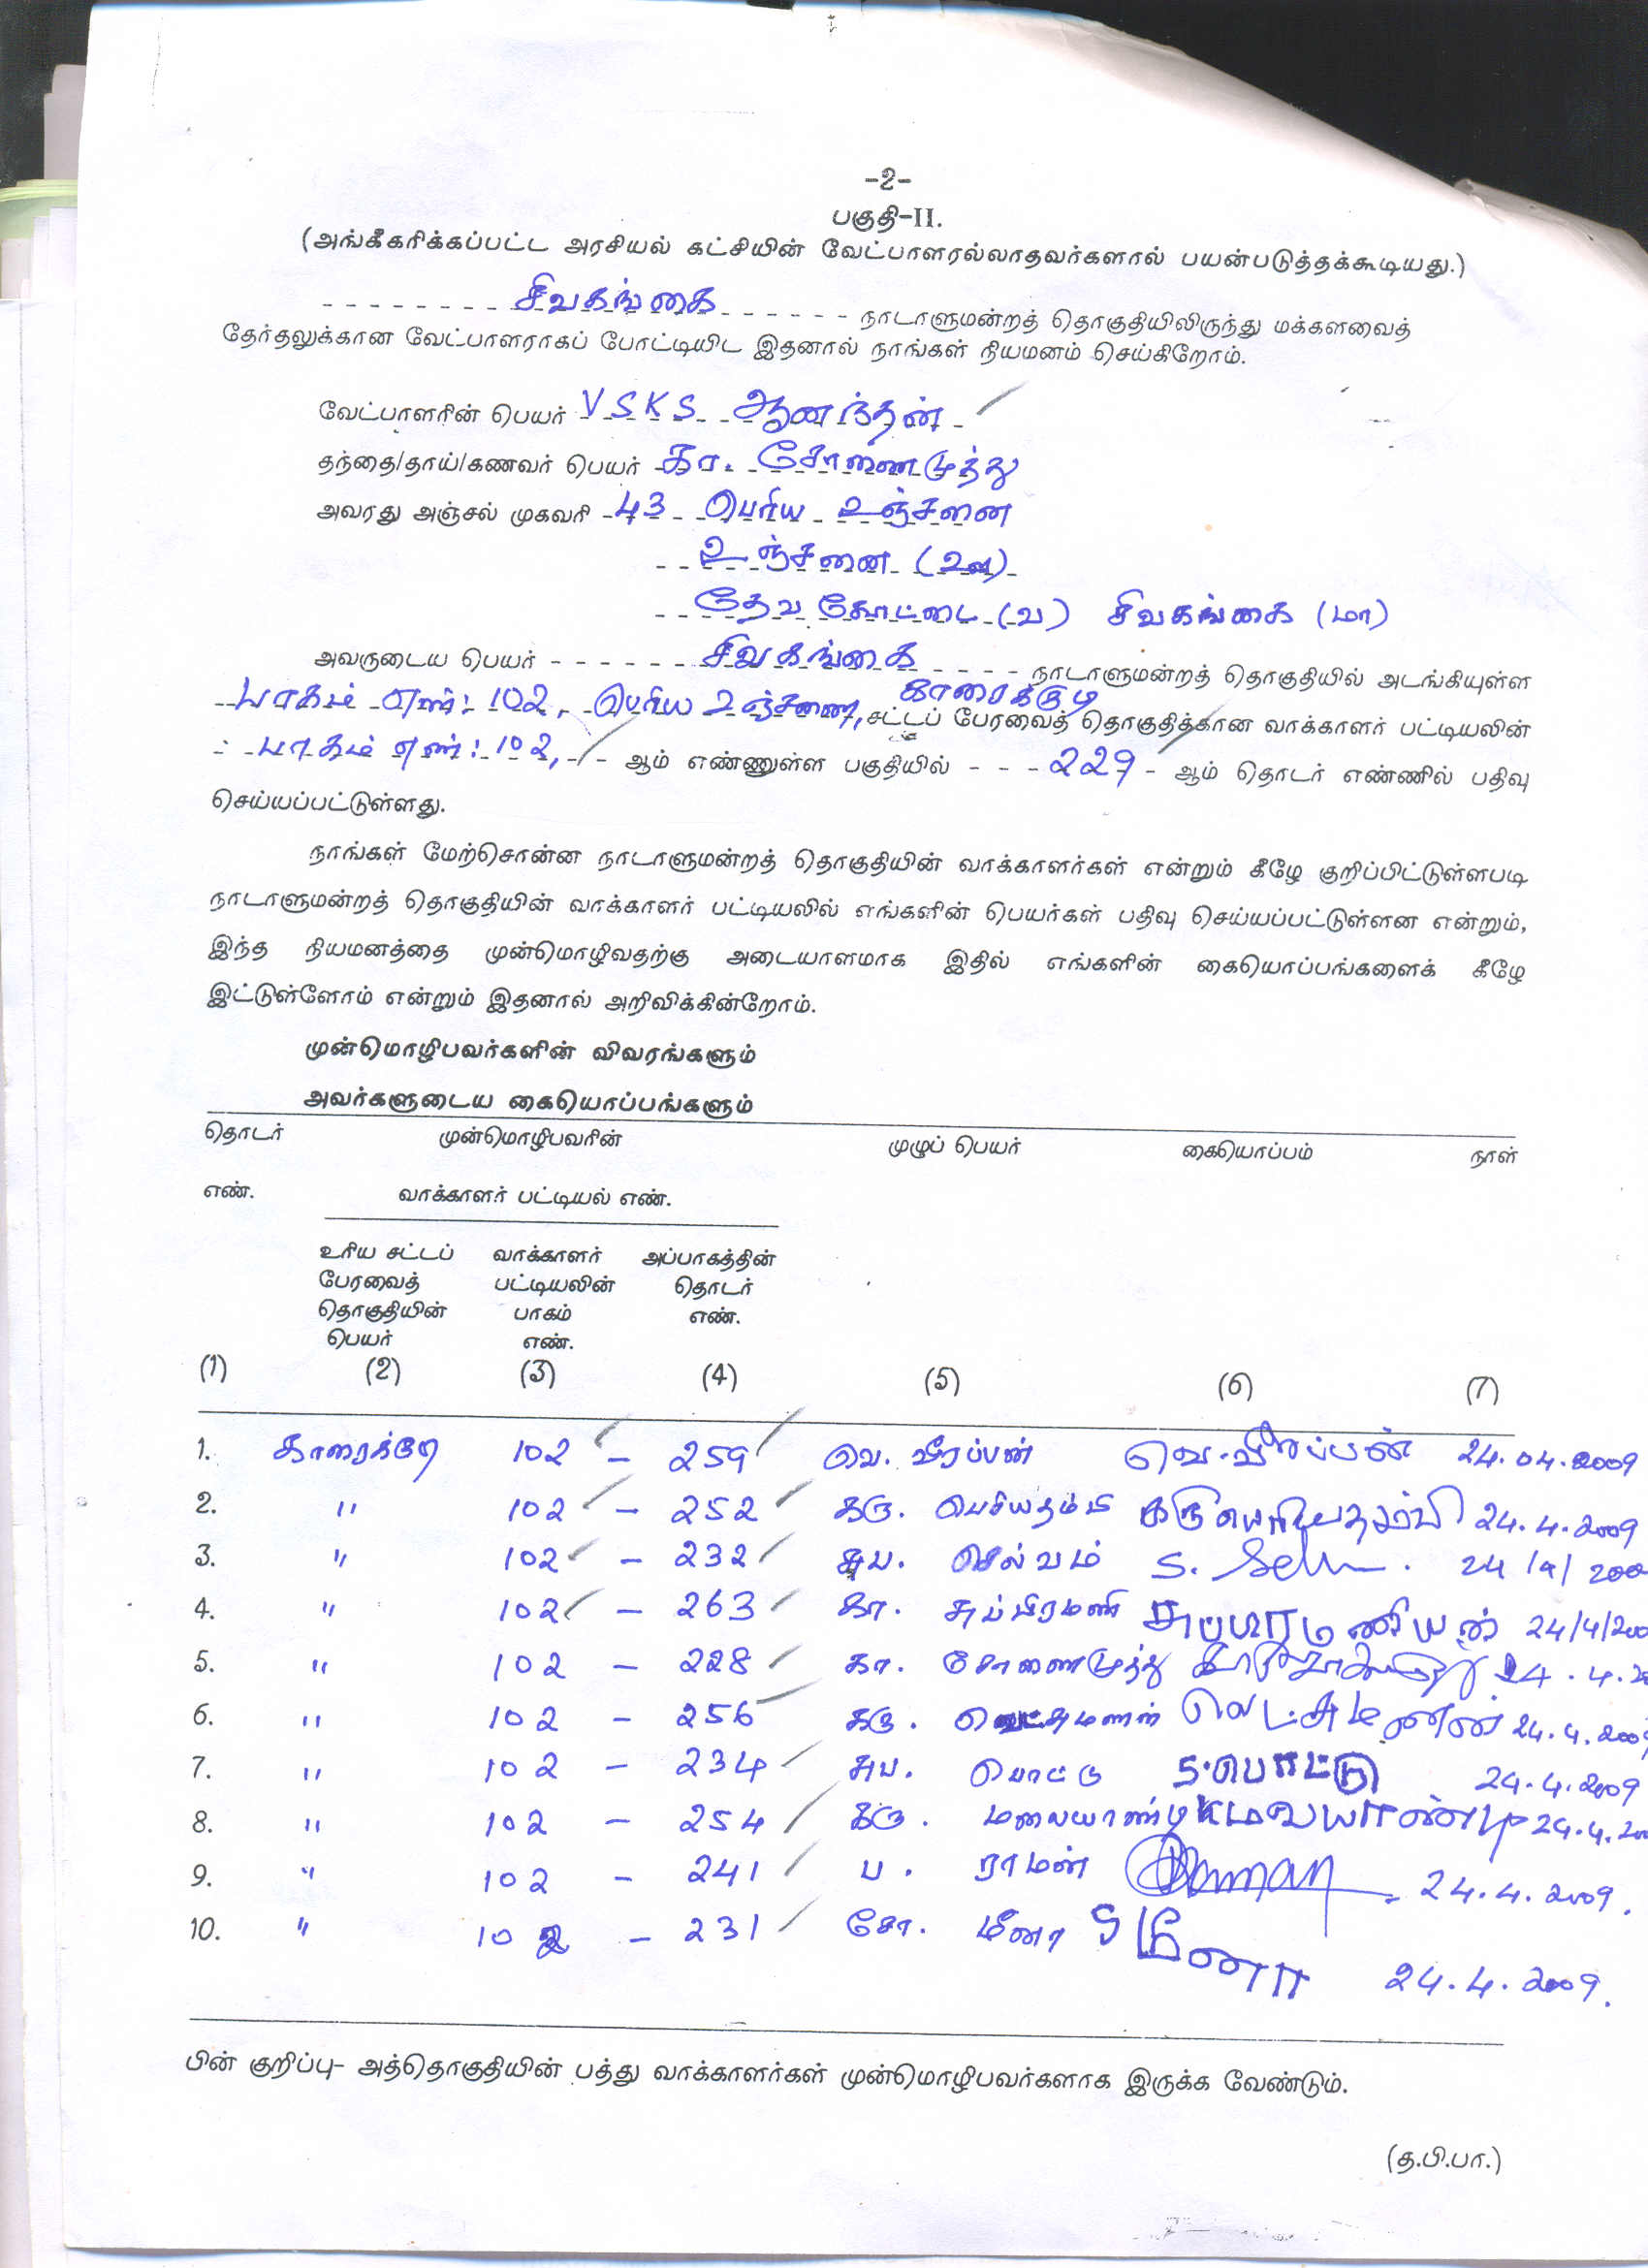 -2-
பகுதி-II.
(அங்கீகரிக்கப்பட்ட அரசியல் கட்சியின் வேட்பாளரல்லாதவர்களால் பயன்படுத்தக்கூடியது.)
- - - - - - - - சிவகங்கை - - - - - - நாடாளுமன்றத் தொகுதியிலிருந்து மக்களவைத்
தேர்தலுக்கான வேட்பாளராகப் போட்டியிட இதனால் நாங்கள் நியமனம் செய்கிறோம்.
வேட்பாளரின் பெயர் VSKS ஆனந்தன்
தந்தை/தாய்/கணவர் பெயர் கா. சோணைமுத்து
அவரது அஞ்சல் முகவரி 43 பெரிய உஞ்சனை
உஞ்சனை
தேவகோட்டை (வ) சிவகங்கை (மா)
அவருடைய பெயர் - - - - - - சிவகங்கை - - - - நாடாளுமன்றத் தொகுதியில் அடங்கியுள்ள
பாகம் எண்: 102, பெரிய உஞ்சனை, காரைக்குடி சட்டப் பேரவைத் தொகுதிக்கான வாக்காளர் பட்டியலின்
பாகம் எண்: 102, - ஆம் எண்ணுள்ள பகுதியில் - - - 229 - ஆம் தொடர் எண்ணில் பதிவு
செய்யப்பட்டுள்ளது.
நாங்கள் மேற்சொன்ன நாடாளுமன்றத் தொகுதியின் வாக்காளர்கள் என்றும் கீழே குறிப்பிட்டுள்ளபடி
நாடாளுமன்றத் தொகுதியின் வாக்காளர் பட்டியலில் எங்களின் பெயர்கள் பதிவு செய்யப்பட்டுள்ளன என்றும்,
இந்த நியமனத்தை முன்மொழிவதற்கு அடையாளமாக இதில் எங்களின் கையொப்பங்களைக் கீழே
இட்டுள்ளோம் என்றும் இதனால் அறிவிக்கின்றோம்.
முன்மொழிபவர்களின் விவரங்களும்
அவர்களுடைய கையொப்பங்களும்
தொடர் முன்மொழிபவரின் முழுப் பெயர் கையொப்பம் நாள்
எண். வாக்காளர் பட்டியல் எண்.
உரிய சட்டப் வாக்காளர் அப்பாகத்தின்
பேரவைத் பட்டியலின் தொடர்
தொகுதியின் பாகம் எண்.
பெயர் எண்.
(1) (2) (3) (4) (5) (6) (7)
1. காரைக்குடி 102 - 259 வெ. வீரப்பன் வெ. வீரப்பன் 24.04.2009
2. " 102 - 252 கரு. பெரியதம்பி கரு பெரியதம்பி 24.4.2009
3. " 102 - 232 சுப. செல்வம் S. 24/4/200
4. " 102 - 263 கா. சுப்பிரமணி சுப்பிரமணியன் 24/4/200
5. " 102 - 228 கா. சோணைமுத்து 24.4.20
6. " 102 - 256 கரு. லெட்சுமணன் லெட்சுமணன் 24.4.2009
7. " 102 - 234 சுப. பொட்டு S.பொட்டு 24.4.2009
8. " 102 - 254 கரு. மலையாண்டி 24.4.200
9. " 102 - 241 ப. ராமன் 24.4.2009.
10. " 102 - 231 சோ. மீனா S மீனா 24.4.2009.
பின் குறிப்பு- அத்தொகுதியின் பத்து வாக்காளர்கள் முன்மொழிபவர்களாக இருக்க வேண்டும்.
(த.பி.பா.)